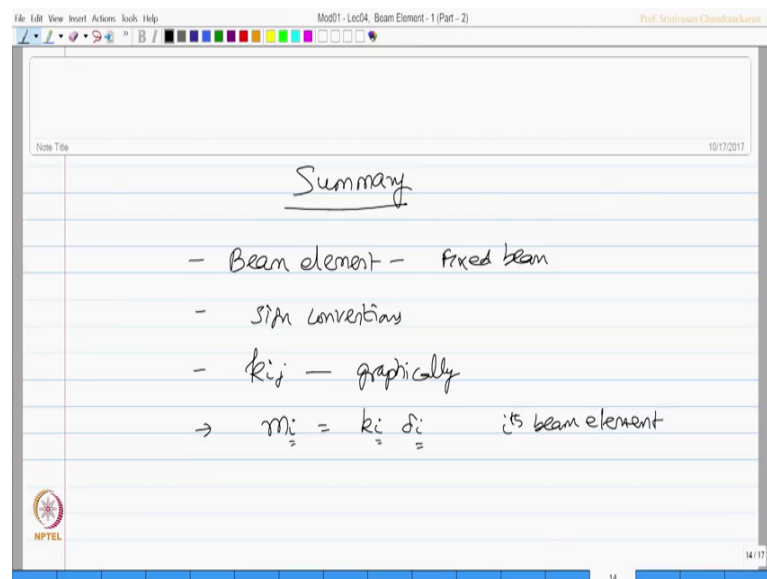 File Edit View Insert Actions Tools Help
Mod01 - Lec04, Beam Element - 1 (Part – 2)
Prof. Srinivasan Chandrasekaran
B I
Note Title
10/17/2017
Summary
- Beam element - fixed beam
- sign conventions
- kij — graphically
→ mi = ki δi ith beam element
NPTEL
14 / 17
14